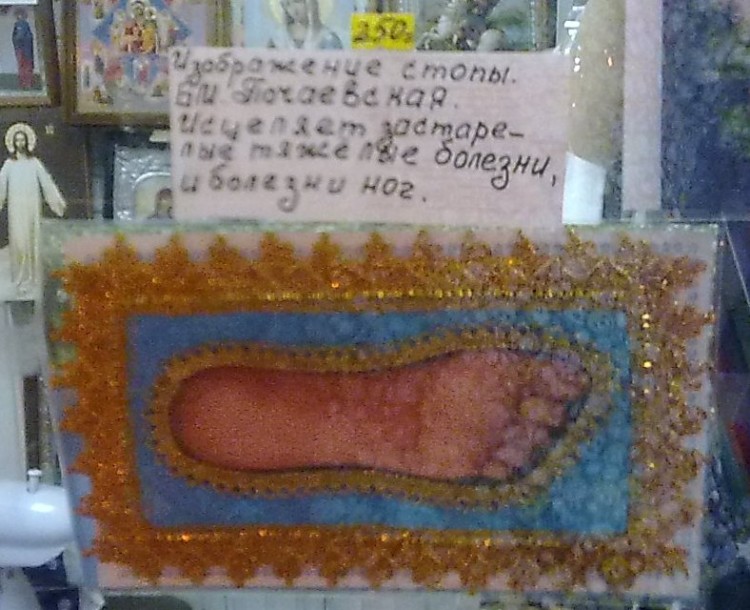 250.
Изображение стопы.
БМ. Почаевская.
Исцеляет застаре-
лые тяжелые болезни,
и болезни ног.